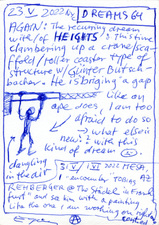 23 V 2022 DREAMS 64
AGAIN: THE recurring dream
with/of HEIGHTS! This time
clambering up a crane/scaf
fold/roller coaster type of
structure, w/Günter Butcha-
bacher. He is bridging a gap
Like on
ape does, I am too
afraid to do so
→ what else is
new! with this
kind of dream
dangling
in the air
31 V / 1 VI 2022 MESA, AZ
I encounter Tobias
REHBERGER @ the Städel in Frank
furt and so him with a painting
like the one I am working on right